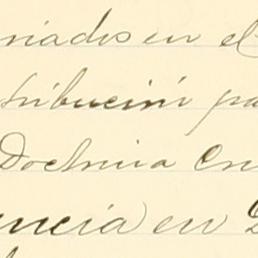 riados en el
tribución pa
Doctrina Cri
uncia en D